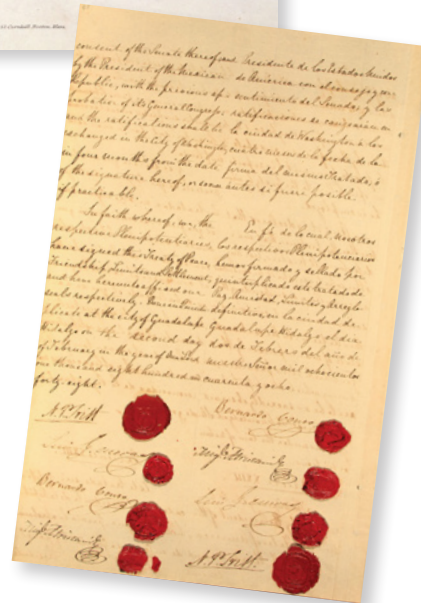 Cornhill, Boston, Mass.
consent of the Senate thereof; and
by the President of the Mexican
Republic, with the previous ap-
probation of its General Congress;
and the ratifications shall be
exchanged in the City of Washington,
in four months from the date
of the signature hereof, or sooner
if practicable.
In faith whereof, we, the
respective Plenipotentiaries,
have signed this Treaty of Peace,
Friendship, Limits and Settlement,
and have hereunto affixed our
seals respectively. Done in Quintu-
plicate at the city of Guadalupe
Hidalgo on the second day
of February in the year of
one thousand eight hundred and
forty-eight.
Presidente de los Estados Unidos
de America con el consejo y con-
sentimiento del Senado; y las
ratificaciones se canjearan en
la ciudad de Washington a los
cuatro meses de la fecha de la
firma del mismo Tratado, ó
antes si fuere posible.
En fé de lo cual, nosotros
los respectivos Plenipotenciarios
hemos firmado y sellado por
quintuplicado este tratado de
Paz, Amistad, Limites y Arreglo
definitivo en la ciudad de
Guadalupe Hidalgo el dia
dos de Febrero del año de
mil ochocientos
cuarenta y ocho.
N. P. Trist
Luis G. Cuevas
Bernardo Couto
Migl Atristain
Bernardo Couto
Migl Atristain
Luis G. Cuevas
N. P. Trist